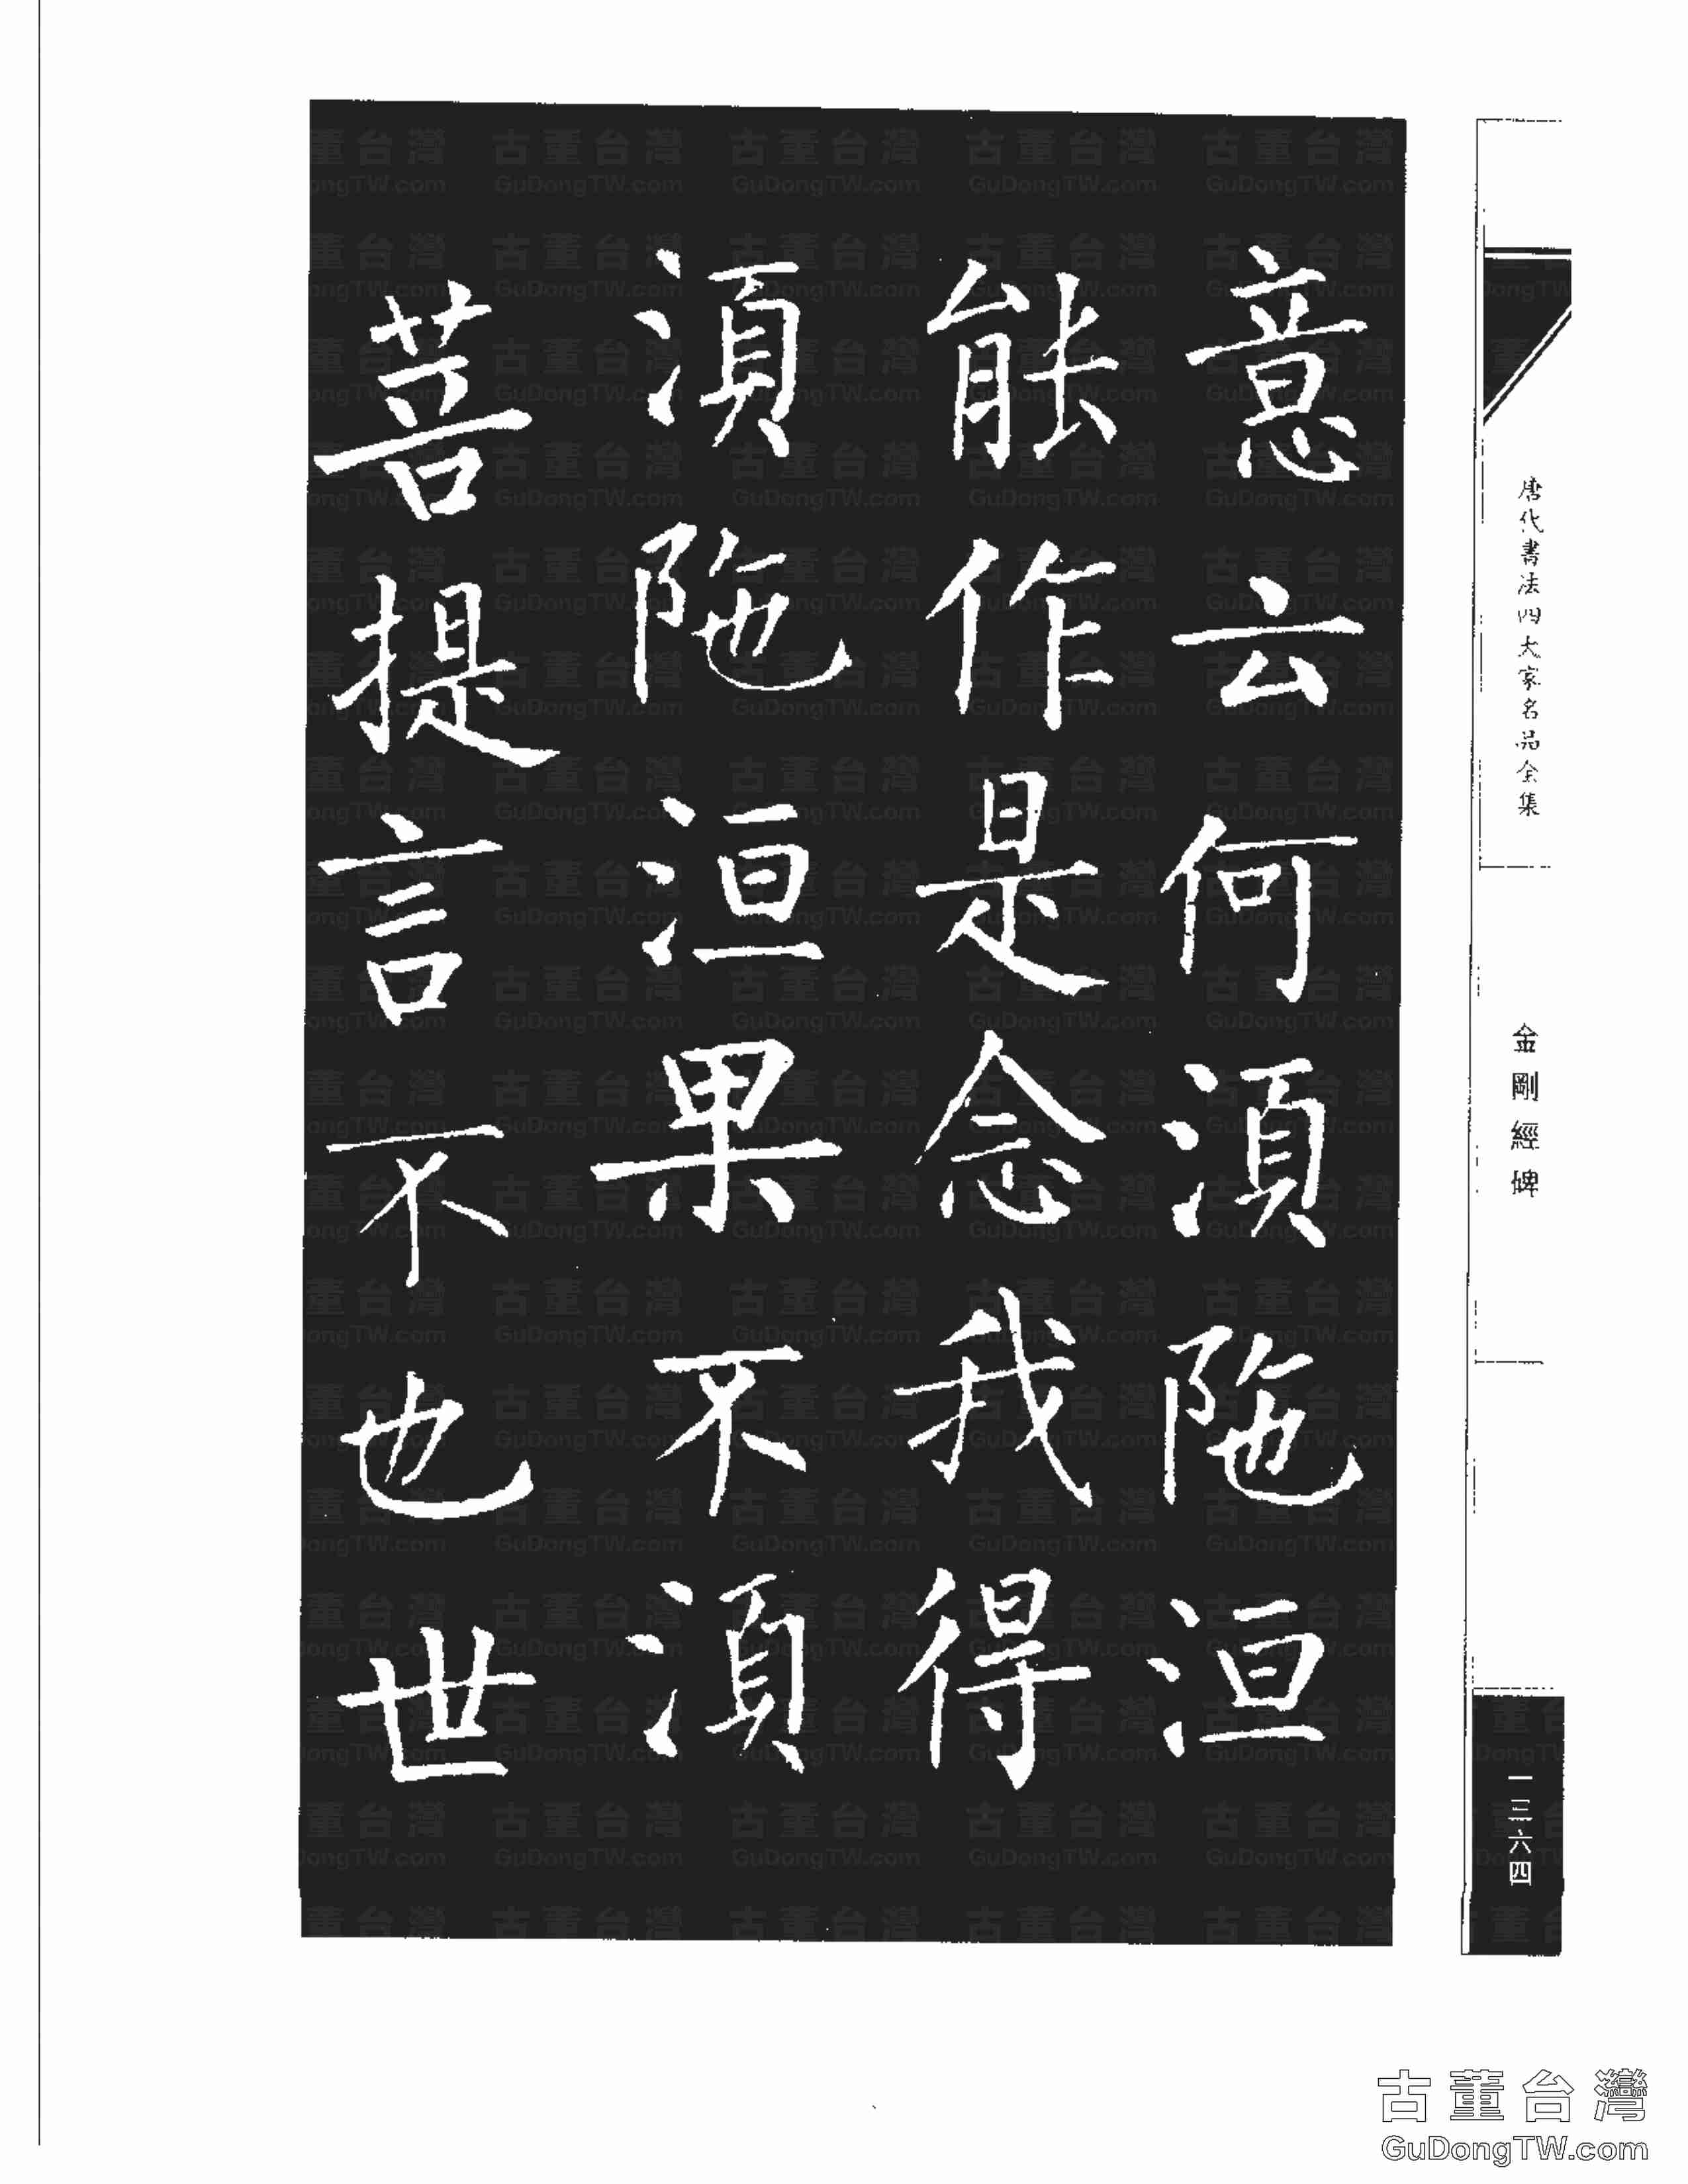 意云何湏陁洹
能作是念我得
湏陁洹果不湏
菩提言不也世
唐代書法四大家名品全集
金剛經碑
一三六四
古董台灣
GuDongTW.com